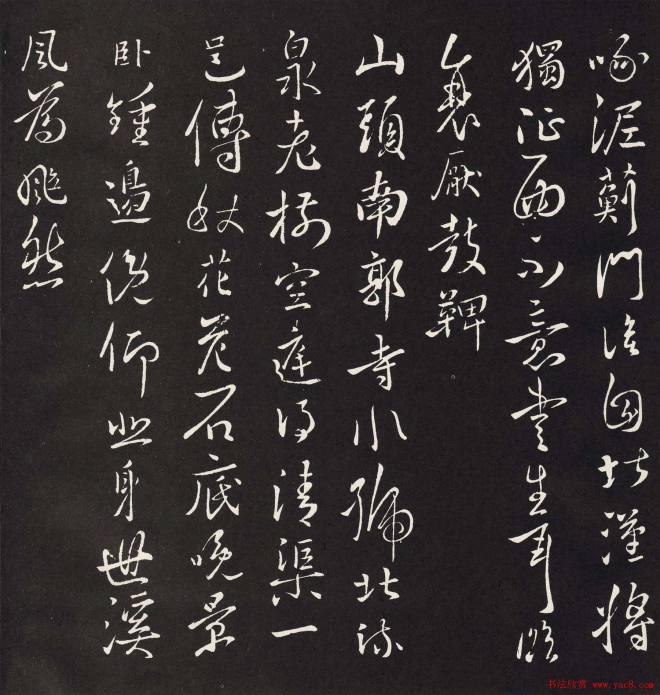 啄泥薊門誰自北漢將
獨征西不意書生耳臨
衰厭鼓鞞
山頭南郭寺水號北流
泉老樹空庭得清渠一
邑傳秋花危石底晚景
卧鍾邊俛仰悲身世溪
風為颯然
书法欣赏 www.yac8.com